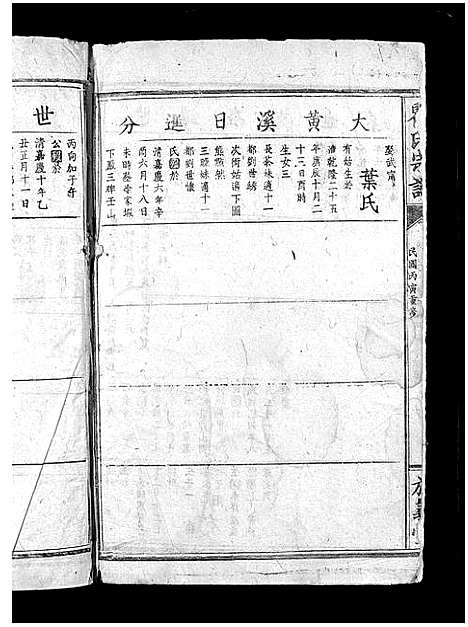 氏宗譜
民國丙寅重修
大黄溪日運分
娶武甯
葉氏
有姑生於
清乾隆二十五
年庚辰十月二
十三日酉時
生女三
長茶妹適一
都劉世綉
次街姑適下園
熊㸃然
三暖妹適一
都劉世懷
氏殁於
清嘉慶六年辛
酉六月十八日
未時葬李家塅
下艮三碑壬山
世
丙向加子午
公殁於
清嘉慶十年乙
丑五月十一日